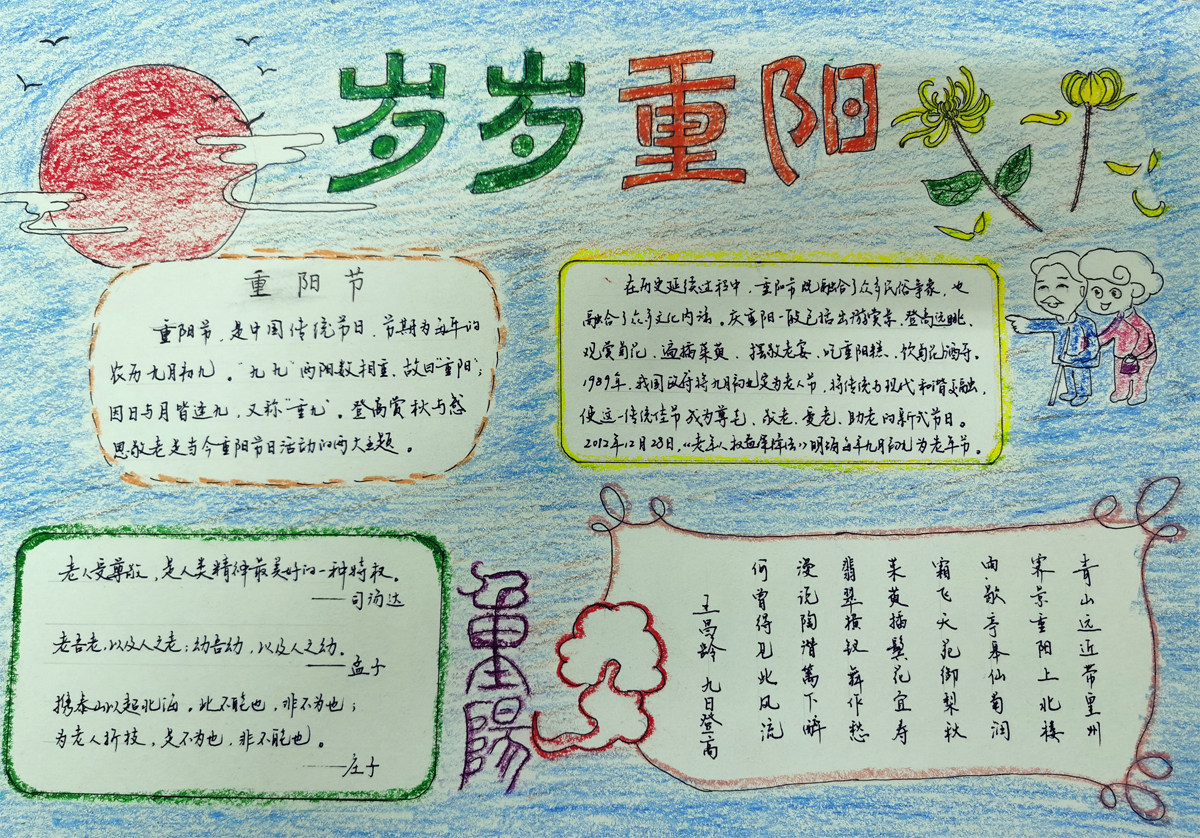 岁岁重阳
重阳节
重阳节，是中国传统节日，节期为每年的
农历九月初九。“九九”两阳数相重，故曰“重阳”；
因日与月皆逢九，又称“重九”。登高赏秋与感
恩敬老是当今重阳节日活动的两大主题。
在历史延续过程中，重阳节既融合了众多民俗事象，也
融合了众多文化内涵。庆重阳一般包括出游赏景、登高远眺、
观赏菊花、遍插茱萸、摆敬老宴、吃重阳糕、饮菊花酒等。
1989年，我国政府将九月初九定为老人节，将传统与现代和谐交融，
使这一传统佳节成为尊老、敬老、爱老、助老的新式节日。
2012年12月28日，《老年人权益保障法》明确每年九月初九为老年节。
老人受尊敬，是人类精神最美好的一种特权。
——司汤达
老吾老，以及人之老；幼吾幼，以及人之幼。
——孟子
携泰山以超北海，此不能也，非不为也；
为老人折枝，是不为也，非不能也。
——庄子
重陽
青山远近带皇州
霁景重阳上北楼
雨歇亭皋仙菊润
霜飞天苑御梨秋
茱萸插鬓花宜寿
翡翠横钗舞作愁
漫说陶潜篱下醉
何曾得见此风流
王昌龄 九日登高